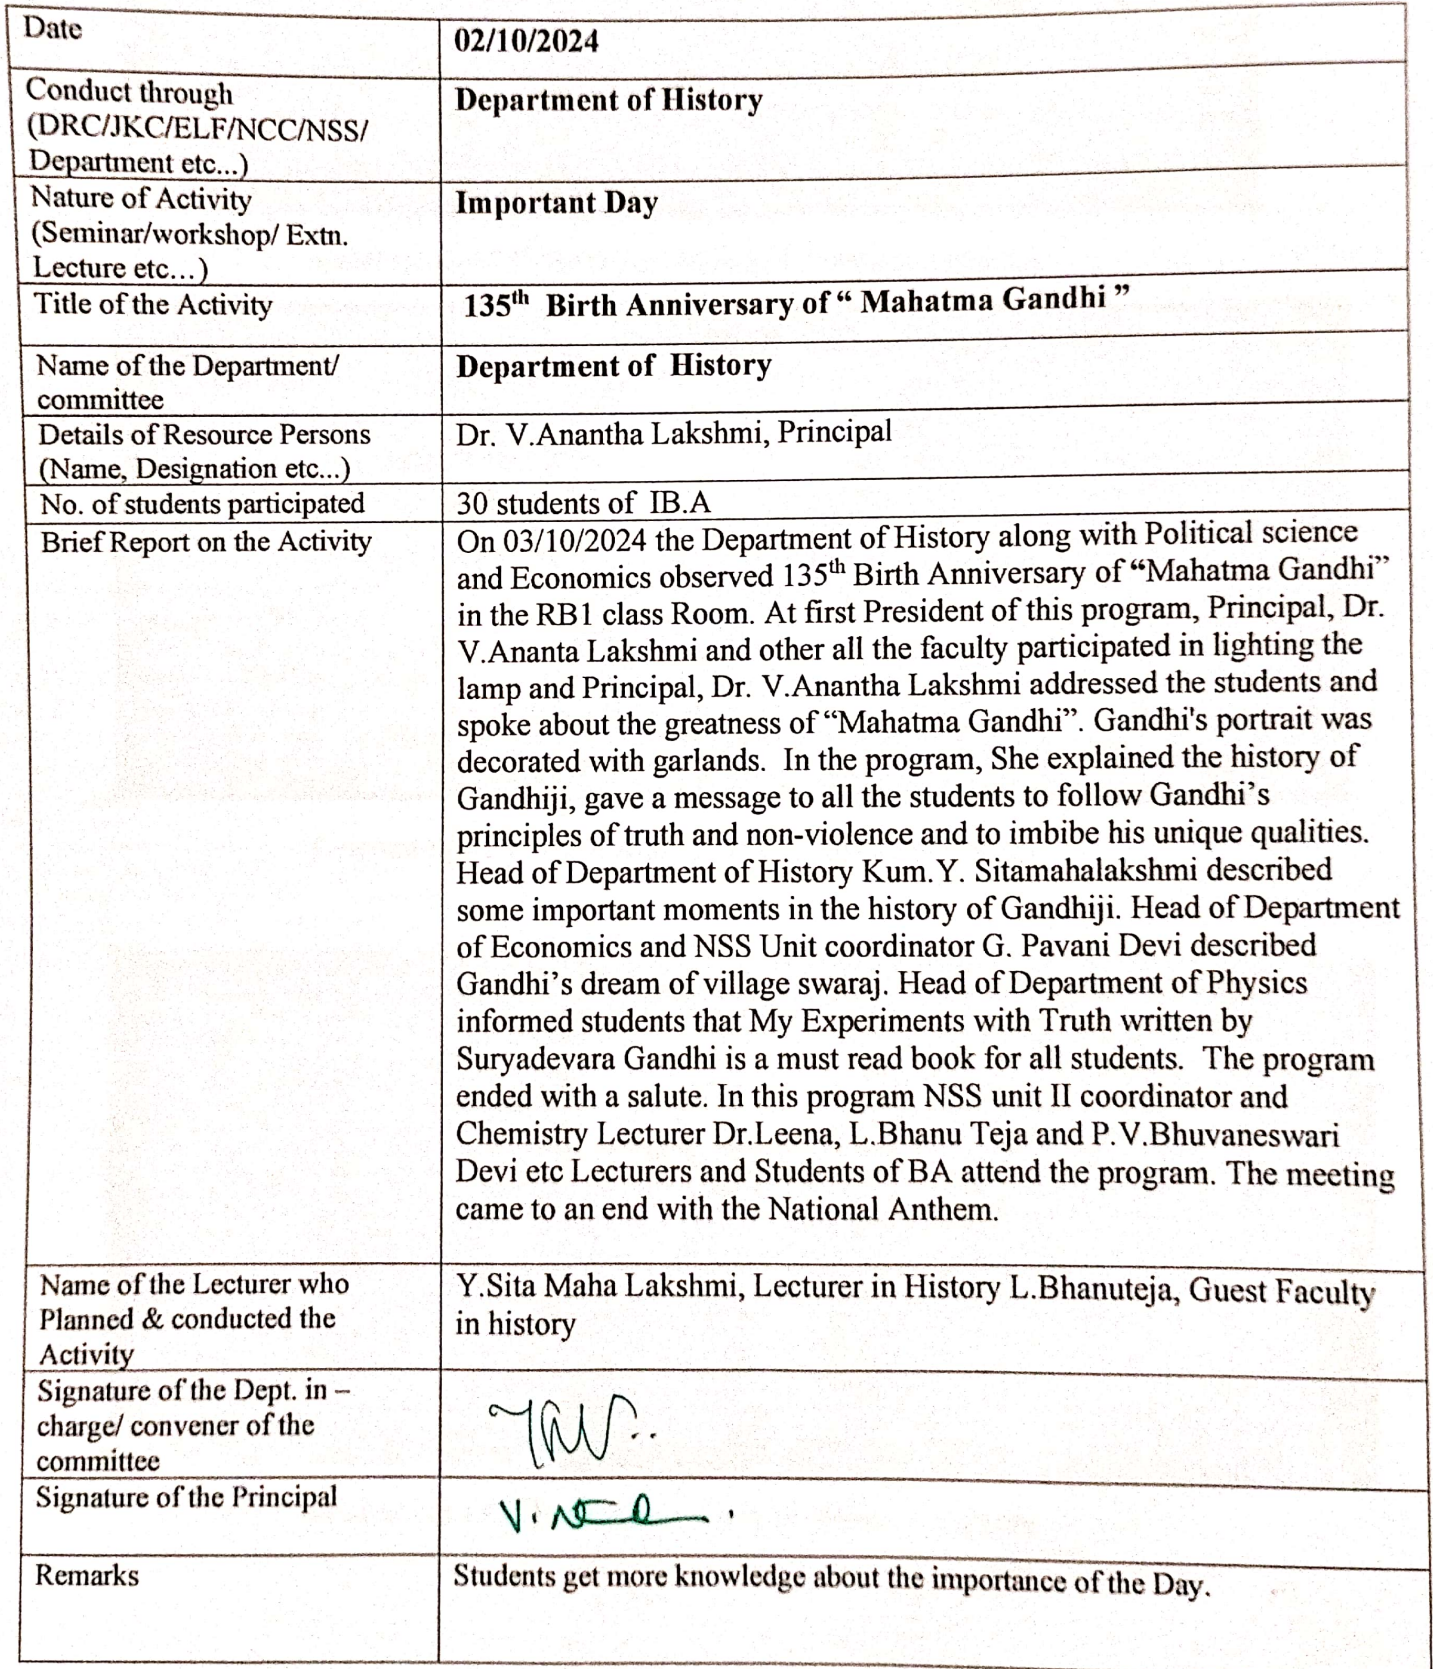 Date
02/10/2024
Conduct through
(DRC/JKC/ELF/NCC/NSS/
Department etc...)
Department of History
Nature of Activity
(Seminar/workshop/ Extn.
Lecture etc...)
Important Day
Title of the Activity
135th Birth Anniversary of “ Mahatma Gandhi ”
Name of the Department/
committee
Department of History
Details of Resource Persons
(Name, Designation etc...)
Dr. V.Anantha Lakshmi, Principal
No. of students participated
30 students of IB.A
Brief Report on the Activity
On 03/10/2024 the Department of History along with Political science
and Economics observed 135th Birth Anniversary of “Mahatma Gandhi”
in the RB1 class Room. At first President of this program, Principal, Dr.
V.Ananta Lakshmi and other all the faculty participated in lighting the
lamp and Principal, Dr. V.Anantha Lakshmi addressed the students and
spoke about the greatness of “Mahatma Gandhi”. Gandhi's portrait was
decorated with garlands. In the program, She explained the history of
Gandhiji, gave a message to all the students to follow Gandhi’s
principles of truth and non-violence and to imbibe his unique qualities.
Head of Department of History Kum.Y. Sitamahalakshmi described
some important moments in the history of Gandhiji. Head of Department
of Economics and NSS Unit coordinator G. Pavani Devi described
Gandhi’s dream of village swaraj. Head of Department of Physics
informed students that My Experiments with Truth written by
Suryadevara Gandhi is a must read book for all students. The program
ended with a salute. In this program NSS unit II coordinator and
Chemistry Lecturer Dr.Leena, L.Bhanu Teja and P.V.Bhuvaneswari
Devi etc Lecturers and Students of BA attend the program. The meeting
came to an end with the National Anthem.
Name of the Lecturer who
Planned & conducted the
Activity
Y.Sita Maha Lakshmi, Lecturer in History L.Bhanuteja, Guest Faculty
in history
Signature of the Dept. in –
charge/ convener of the
committee
Signature of the Principal
Remarks
Students get more knowledge about the importance of the Day.